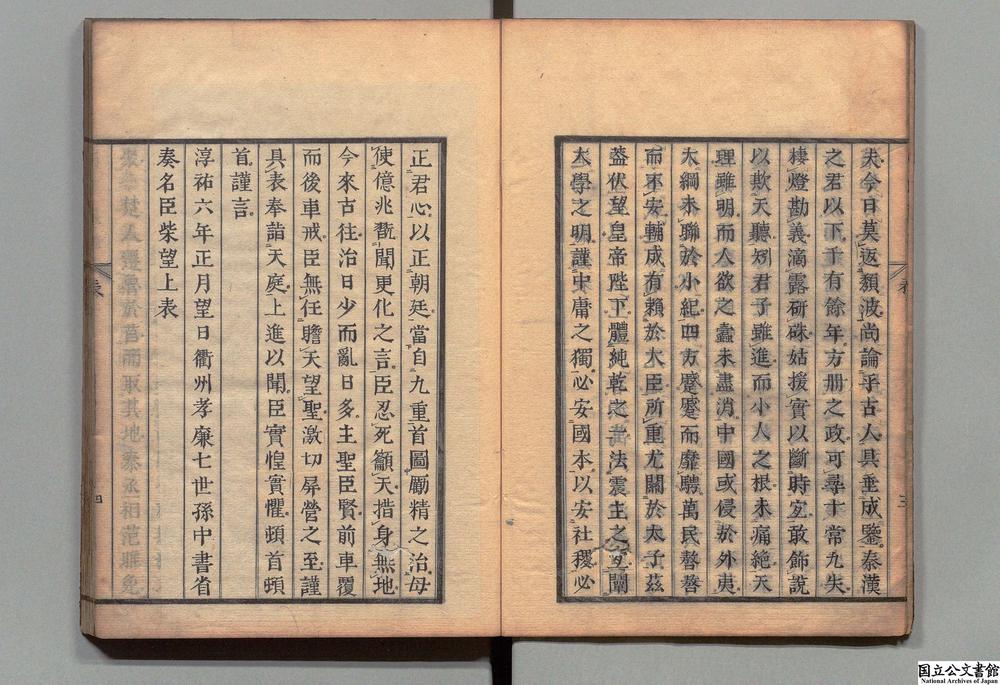 夫今日莫返頽波尚論乎古人具垂成鑒秦漢
之君以下千有餘年方册之政可尋十常九失
棲燈勘義滴露研硃姑援實以斷時宐敢飾說
以欺天聽矧君子雖進而小人之根未痛絶天
理雖明而人欲之蠹未盡消中國或侵於外夷
大綱未聯於小紀四方蹙蹙而靡騁萬民嗸嗸
而不安輔成有賴於大臣所重尤關於太子茲
蓋伏望皇帝陛下體純乾之法震主之
大學之明謹中庸之獨必安國本以安社稷必
三
正君心以正朝廷當自九重首圖勵精之治毋
使億兆翫聞更化之言臣忍死籲天措身無地
今來古往治日少而亂日多主聖臣賢前車覆
而後車戒臣無任瞻天望聖激切屏營之至謹
具表奉詣天庭上進以聞臣實惶實懼頓首頓
首謹言
淳祐六年正月望日衢州孝廉七世孫中書省
奏名臣柴望上表
表
四
国立公文書館
National Archives of Japan